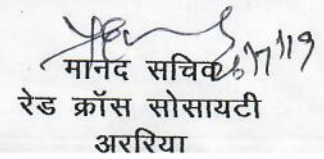 मानद सचिव
रेड क्रॉस सोसायटी
अररिया